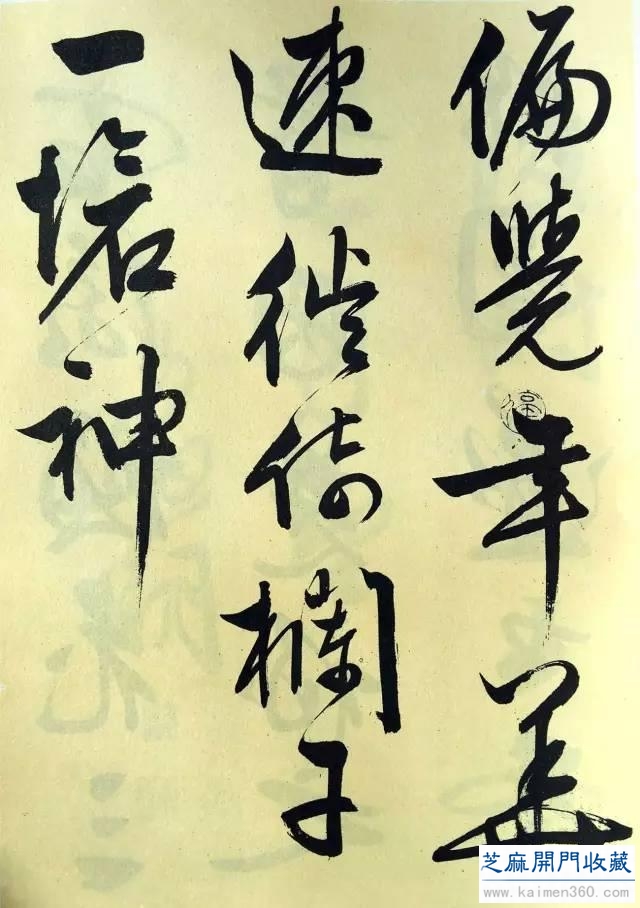 偏覺年華
速徙倚欄干
一愴神
芝麻開門收藏
www.kaimen360.com